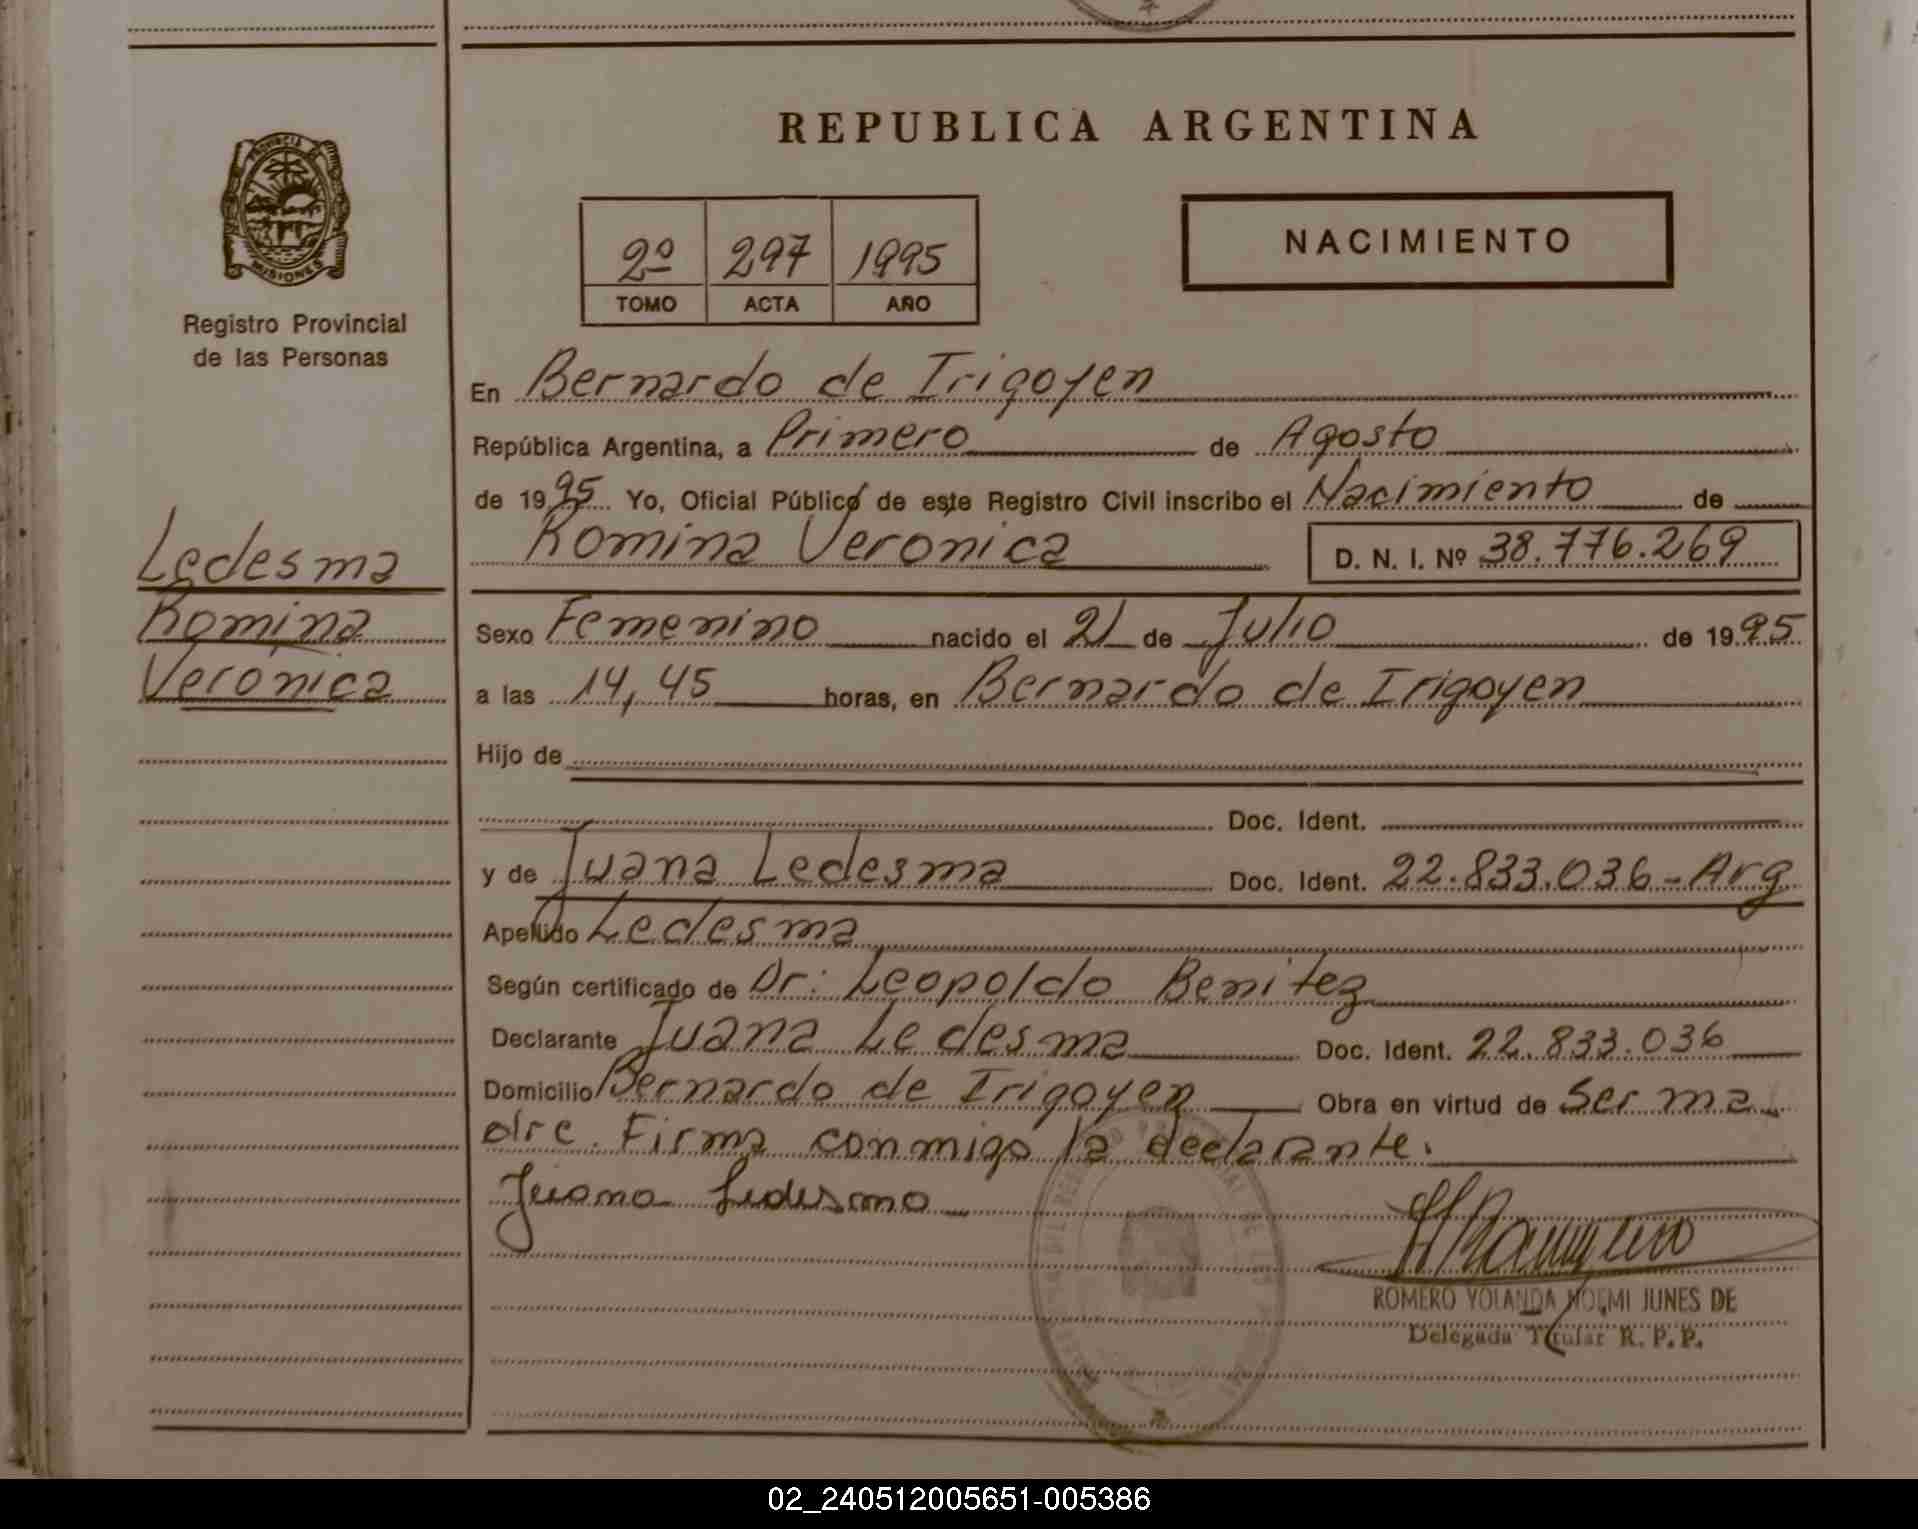 REPUBLICA ARGENTINA
PROVINCIA DE
MISIONES
Registro Provincial
de las Personas
2º 297 1995
TOMO ACTA AÑO
NACIMIENTO
Ledesma
Romina
Veronica
En Bernardo de Irigoyen
República Argentina, a Primero de Agosto
de 1995 Yo, Oficial Público de este Registro Civil inscribo el Nacimiento de
Romina Veronica D. N. I. Nº 38.776.269
Sexo Femenino nacido el 21 de Julio de 1995
a las 14,45 horas, en Bernardo de Irigoyen
Hijo de
Doc. Ident.
y de Juana Ledesma Doc. Ident. 22.833.036-Arg
Apellido Ledesma
Según certificado de Dr: Leopoldo Benitez
Declarante Juana Ledesma Doc. Ident. 22.833.036
Domicilio Bernardo de Irigoyen Obra en virtud de Ser ma
dre. Firma conmigo la declarante.
Juana Ledesma
ROMERO YOLANDA NOEMI JUNES DE
Delegada Titular R. P. P.
02_240512005651-005386